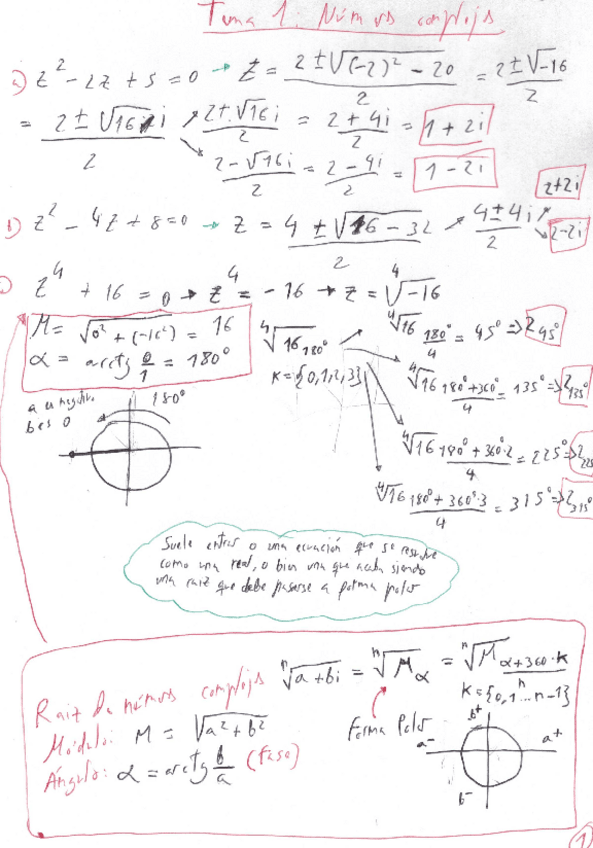 Tema 1. Números complejos
a) z² - 2z + 5 = 0 → z = (2 ± √((-2)² - 20))/2 = (2 ± √-16)/2
= (2 ± √16 i)/2 ↗ (2 + √16 i)/2 = (2 + 4i)/2 = 1 + 2i
↘ (2 - √16 i)/2 = (2 - 4i)/2 = 1 - 2i
b) z² - 4z + 8 = 0 → z = (4 ± √(16 - 32))/2 → (4 ± 4i)/2
2+2i
2-2i
z⁴ + 16 = 0 → z⁴ = -16 → z = ⁴√-16
M = √(0² + (-16²)) = 16
α = arctg 0/1 = 180°
a es negativo
b es 0
180°
⁴√16 180°
K = {0,1,2,3}
⁴√16 180°/4 = 45° ⇒ 2 45°
⁴√16 (180° + 360°)/4 = 135° ⇒ 2 135°
⁴√16 (180° + 360°·2)/4 = 225° ⇒ 2 225
⁴√16 (180° + 360°·3)/4 = 315° ⇒ 2 315°
Suele entrar o una ecuación que se resuelve
como una real, o bien una que acaba siendo
una raiz que debe pasarse a forma polar
Raiz de números complejos ⁿ√(a + bi) = ⁿ√(M α) = ⁿ√M (α + 360·k)/n
K = {0,1...n-1}
Módulo: M = √(a² + b²)
Forma Polar
Ángulo: α = arctg b/a (fase)
b⁺
a⁻
a⁺
b⁻
1